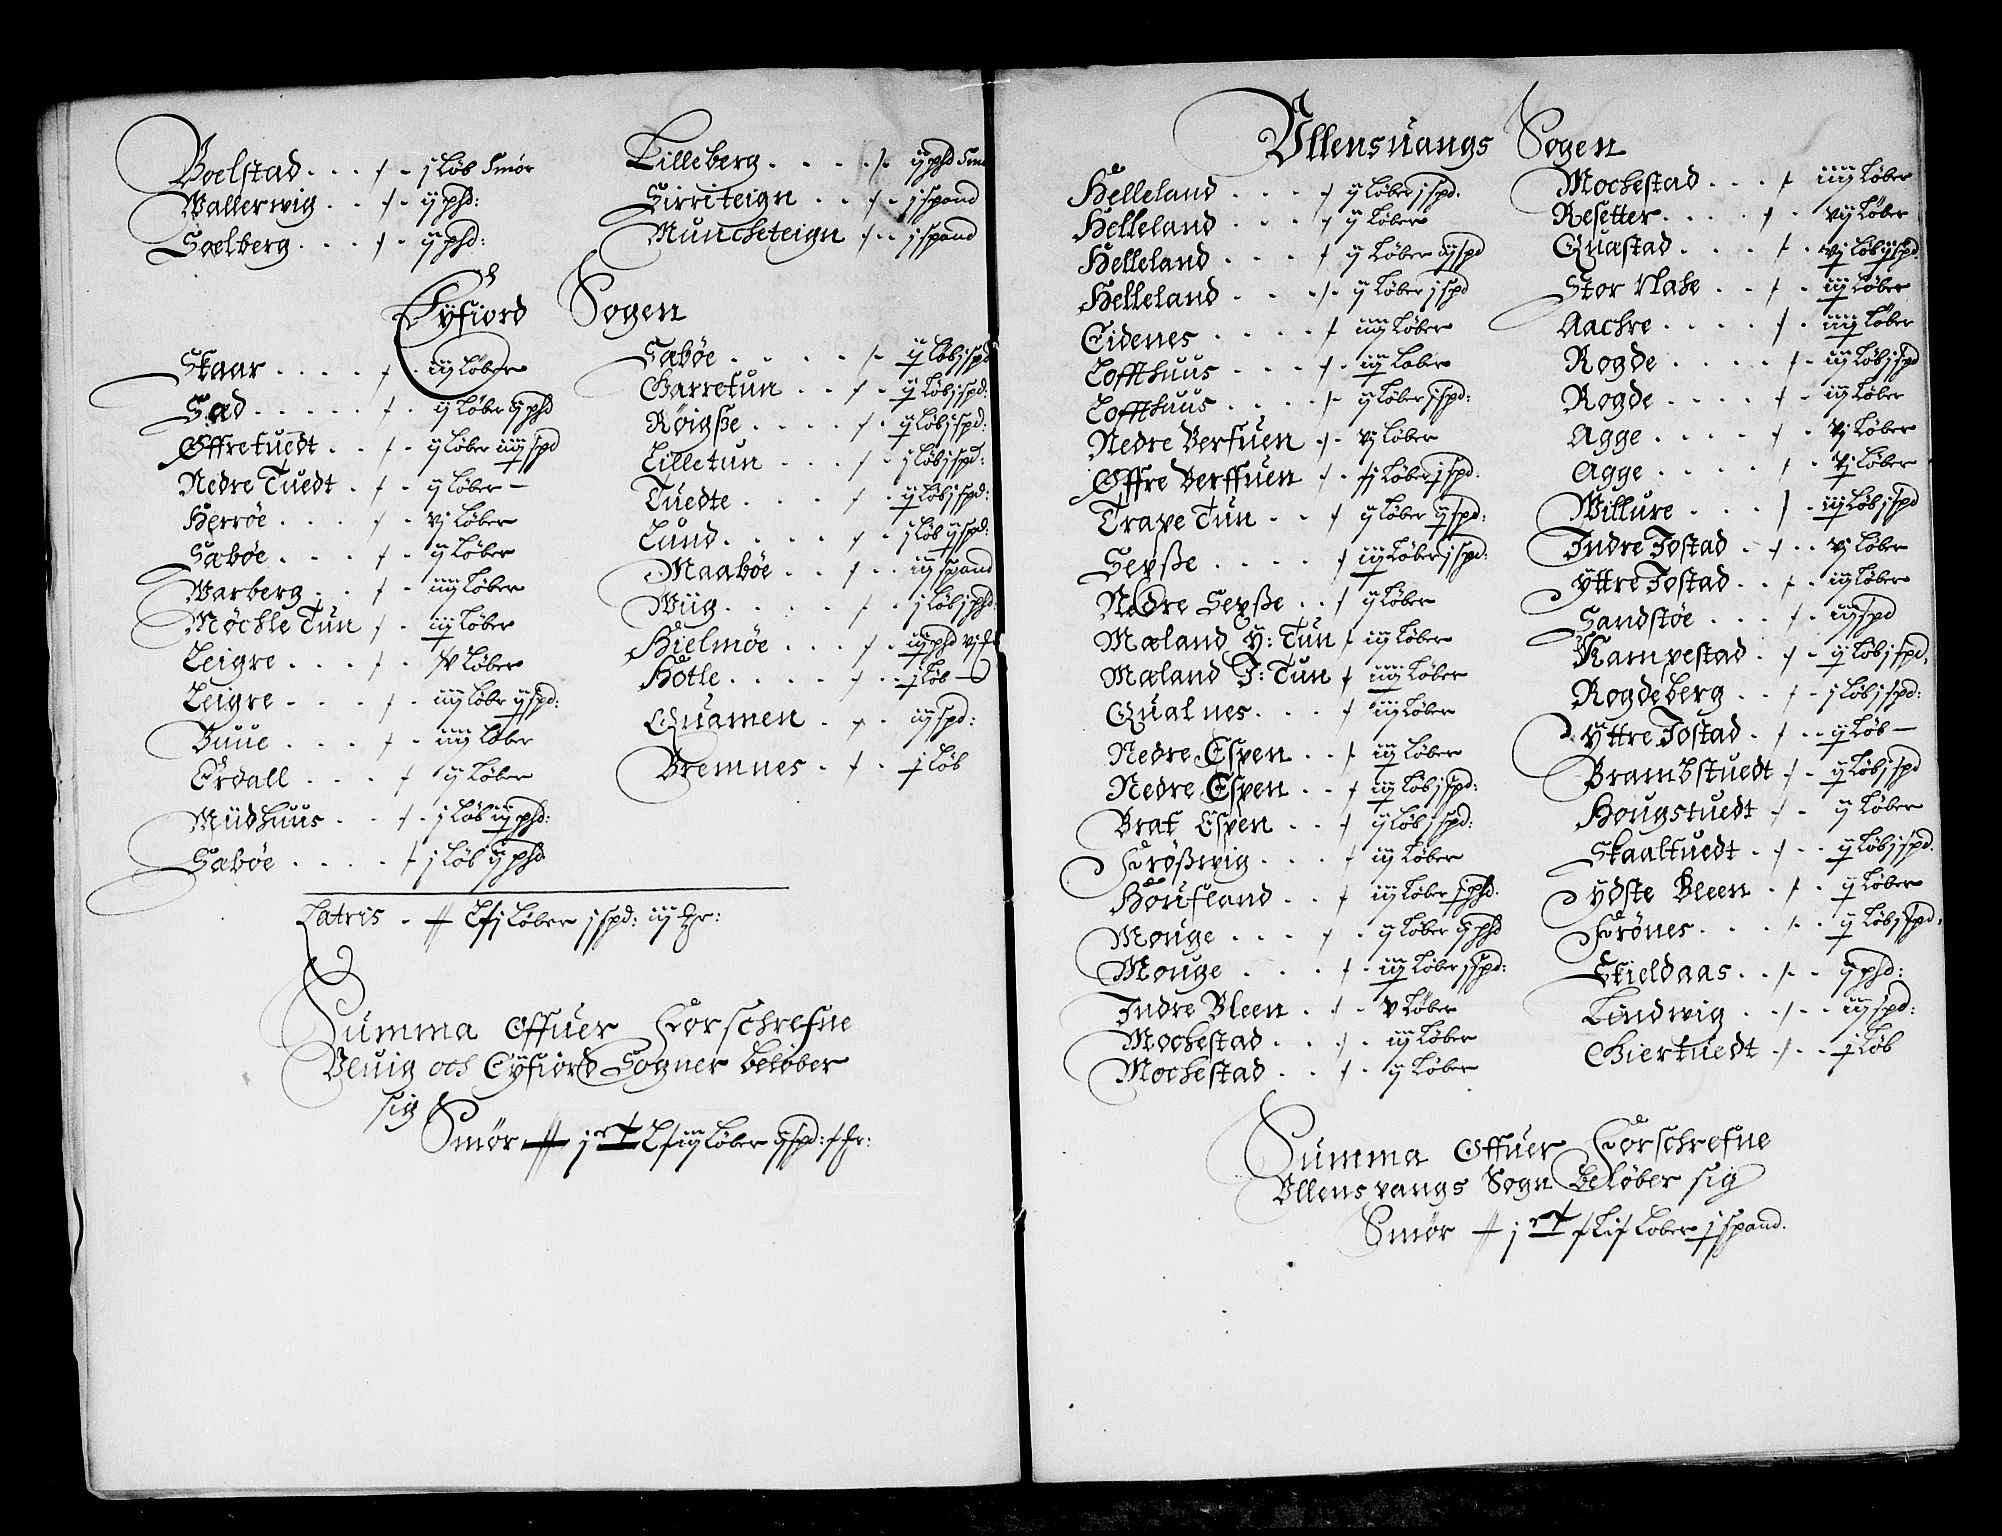 Boelstad . . . + - j Løb Smør
Wallerwig . . + - ij phd:
Soelberg . . . + - ij phd:
Lilleberg . . . . . + ij phd Smø
Sirriteign . . + - j spand
Muncheteign + . . j spand
Eyfiord Sogen
Skaar . . . . + - iij Løber
Sæd . . . . . + - ij Løber ij phd
Offretuedt . . + - ij Løber iiij spd
Nedre Tuedt . + - ij Løber —
Herröe . . . + - vj Løber
Sæbøe . . . + - ij Løber
Warberg . . + - iiij Løber
Möchle Tun + - iij Løber
Leigre . . . + - Løber
Leigre . . . + - iiij Løbr ij spd:
Buue . . . + - iiij Løber
Erdall . . . + ij Løber
Müdhuus . . + - j Løb iij phd:
Sæbøe . . . . + j Løb ij phd
Sæbøe . . . . . + - ij Løb j spd
Garretun . . + - ij Løb j spd:
Röigße . . . . + - ij Løb j spd:
Lilletun . . . + - j Løb j spd:
Tuedte . . . . + - ij Løb j spd:
Lund . . . . . + - j Løb ij spd:
Maabøe . . + . . iij spand
Wiig . . . . . + - j Løb j phd:
Hielmöe . . . + - iij phd vj
Hotle . . . . . + - j Løb —
Quamen . . + - iij spd:
Bremnes . + . . j Løb
Latris - Løber j spd: iij
Summa Offuer Forschrefne
Vluig och Eyfiord Sogner beløber
sig
Smør Løber ij spd:
Vllensuangs Sogen
Helleland . . . . + ij Løber j spd.
Helleland . . . . + ij Løber
Helleland . . . . + ij Løber ij spd
Helleland . . . + - ij Løber j spd
Eidenes . . . . + iiij Løber
Loffthuus . . . + - iij Løber
Loffthuus . . . . + - ij Løber j spd:
Nedre Berfuen + - vj Løber
Offre Berffuen + - Løber j spd:
Trape Tun . . + ij Løber ij spd:
Sexße . . . . . + iij Løber j spd:
Nedre Sexße . . + ij Løber
Mæland Y: Tun + iij Løber
Mæland I: Tun + iiij Løber
Qualnes . . . + iij Løber
Nedre Espen . . + iij Løber
Nedre Espen . . + iij Løb j spd:
Brat Espen . . + ij Løb j spd:
Frößwig . . . + iij Løber
Houfland . . . + iij Løber j phd:
Mouge . . . . + - ij Løber ij phd
Mouge . . . . + - iij Løber j spd:
Indre Bleen . + - v Løber
Mochestad . . . + - iij Løber
Mochestad . . + - ij Løber
Mochestad . . . + iiij Løber
Resetter . . . . + - vij Løber
Quastad . . . . + - vj Løb ij spd
Stor Naße . . + - iij Løber
Aachre . . . . + - iiij Løber
Rogde . . . . . + - iij Løb j spd
Rogde . . . . . + - iij Løber
Agge . . . . . + - vj Løber
Agge . . . . . + vj Løber
Willure . . . . + - iij Løb j spd
Indre Jostad . + . . vj Løber
Yttre Jostad . . + - iij Løber
Sandstöe . . . + iij spd
Kampestad . + - ij Løb j spd:
Rogdeberg . . + - j Løb j spd:
Yttre Jostad . + . . ij Løb —
Brambstuedt + - ij Løb j spd
Hougstuedt + - ij Løber
Skaaltuedt . + . . ij Løb j spd.
Ydste Bleen . + - ij Løber
Frönes . . . . + - ij Løb j spd:
Skieldaas . . + - ij phd:
Lindwig . . . + - iij spd:
Chiertuedt . + . . j Løb
Summa Offuer Forschrefne
Vllensvangs Sogn beløber sig
Smør Løber j spand.